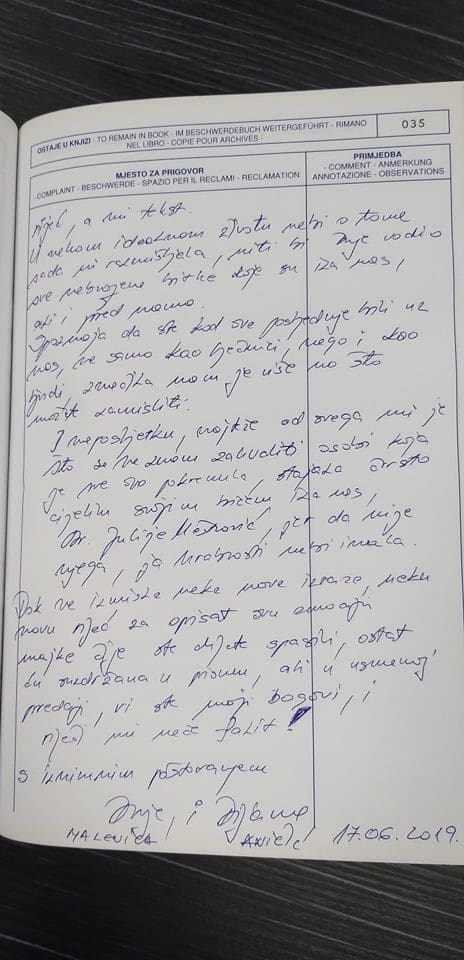 OSTAJE U KNJIZI - TO REMAIN IN BOOK - IM BESCHWERDEBUCH WEITERGEFÜHRT - RIMANO
NEL LIBRO - COPIE POUR ARCHIVES -
035
MJESTO ZA PRIGOVOR
- COMPLAINT - BESCHWERDE - SPAZIO PER IL RECLAMI - RECLAMATION
PRIMJEDBA
- COMMENT - ANMERKUNG
ANNOTAZIONE - OBSERVATIONS
riječ, a ni tekst.
U nekom idealnom životu nebi o tome
sada ni razmišljala, niti bi Duje vodio
sve nebrojene bitke koje su iza nas,
ali i pred nama.
Spoznaja da ste kod sve posljeduje bili uz
nas, ne samo kao liječnici, nego i kao
ljudi značila nam je više no što
možete zamisliti.
I neposljetku, najteže od svega mi je
što se ne znam zahvaliti osobi koja
je sve ovo pokrenula, stajala čvrsto
cijelim svojim bićem iza nas,
Dr. Julije Meštrović, jer da nije
njega, ja hrabrosti nebi imala.
Dok ne izmisle neke nove izraze, neku
novu riječ za opisat svu emociju
majke čije ste dijete spasili, ostat
ću suzdržana u pismu, ali u usmenoj
predaji, vi ste moji bogovi, i
riječi mi neće falit!
S iznimnim poštovanjem
Duje, i Dijana
MALENICA
ANIČIĆ
17.06.2019.